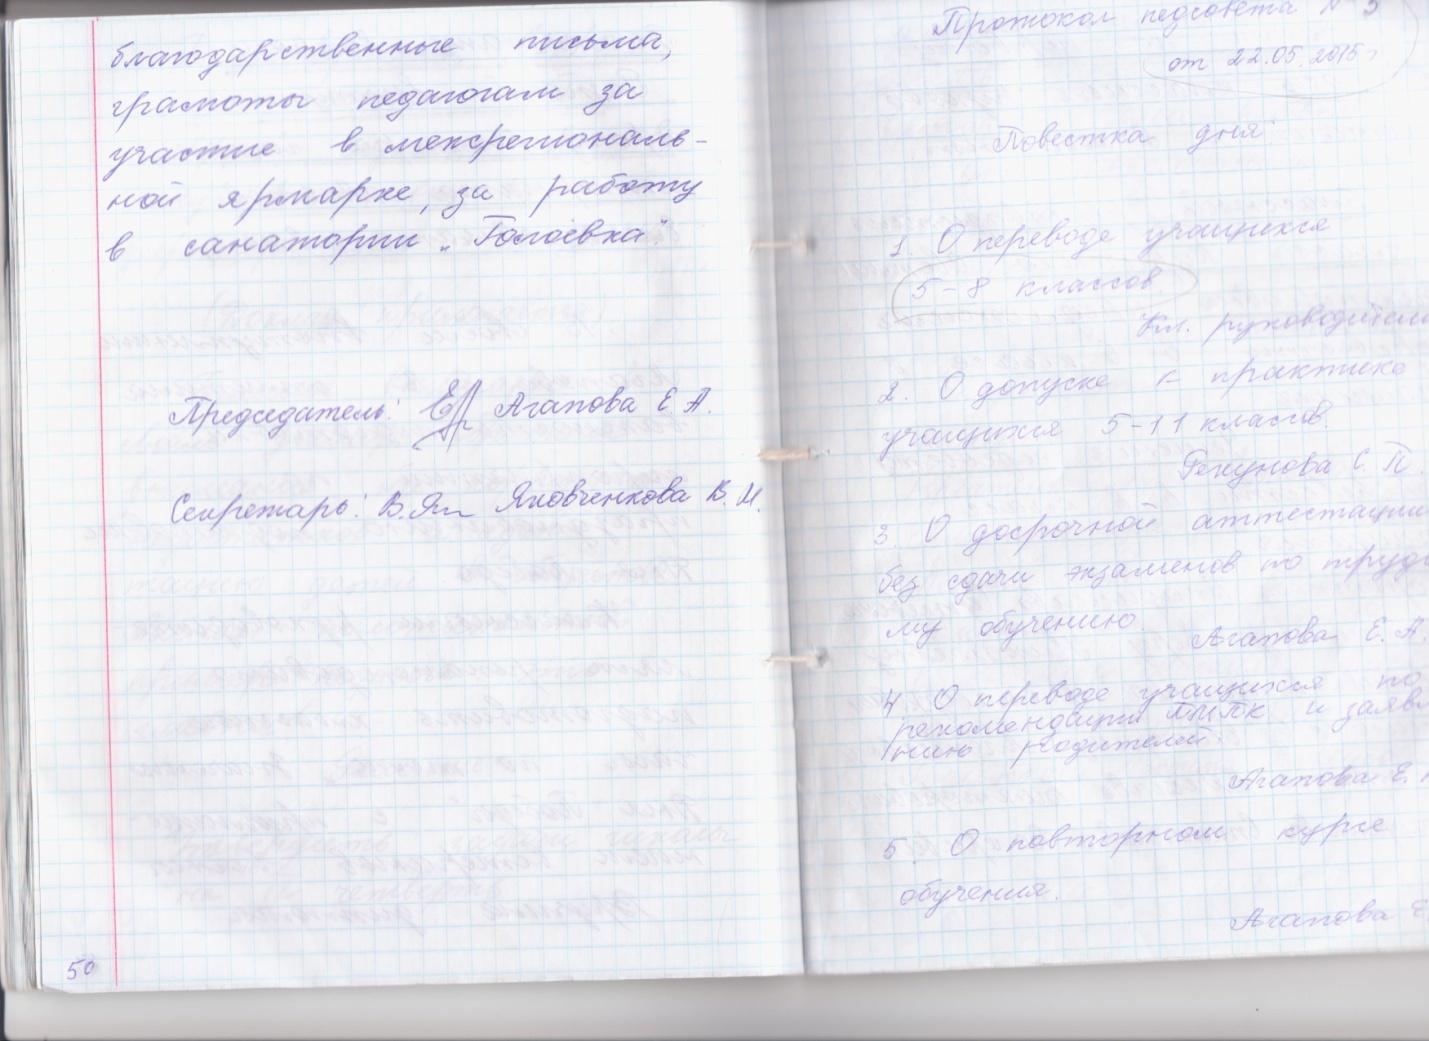 благодарственные письма,
грамоты педагогам за
участие в межрегиональ-
ной ярмарке, за работу
в санатории „Голоевка".
Председатель: Агапова Е. А.
Секретарь: В.Як Яковченкова В. И.
50
Протокол педсовета № 5
от 22.05.2015г
Повестка дня:
1. О переводе учащихся
5-8 классов.
Кл. руководители
2. О допуске к практике
учащихся 5-11 классов.
Рекунова С. П.
3. О досрочной аттестации
без сдачи экзаменов по трудо
му обучению
Агапова Е. А.
4. О переводе учащихся по
рекомендации ПМПК и заявл
нию родителей.
Агапова Е.
5. О повторном курсе
обучения.
Агапова Е